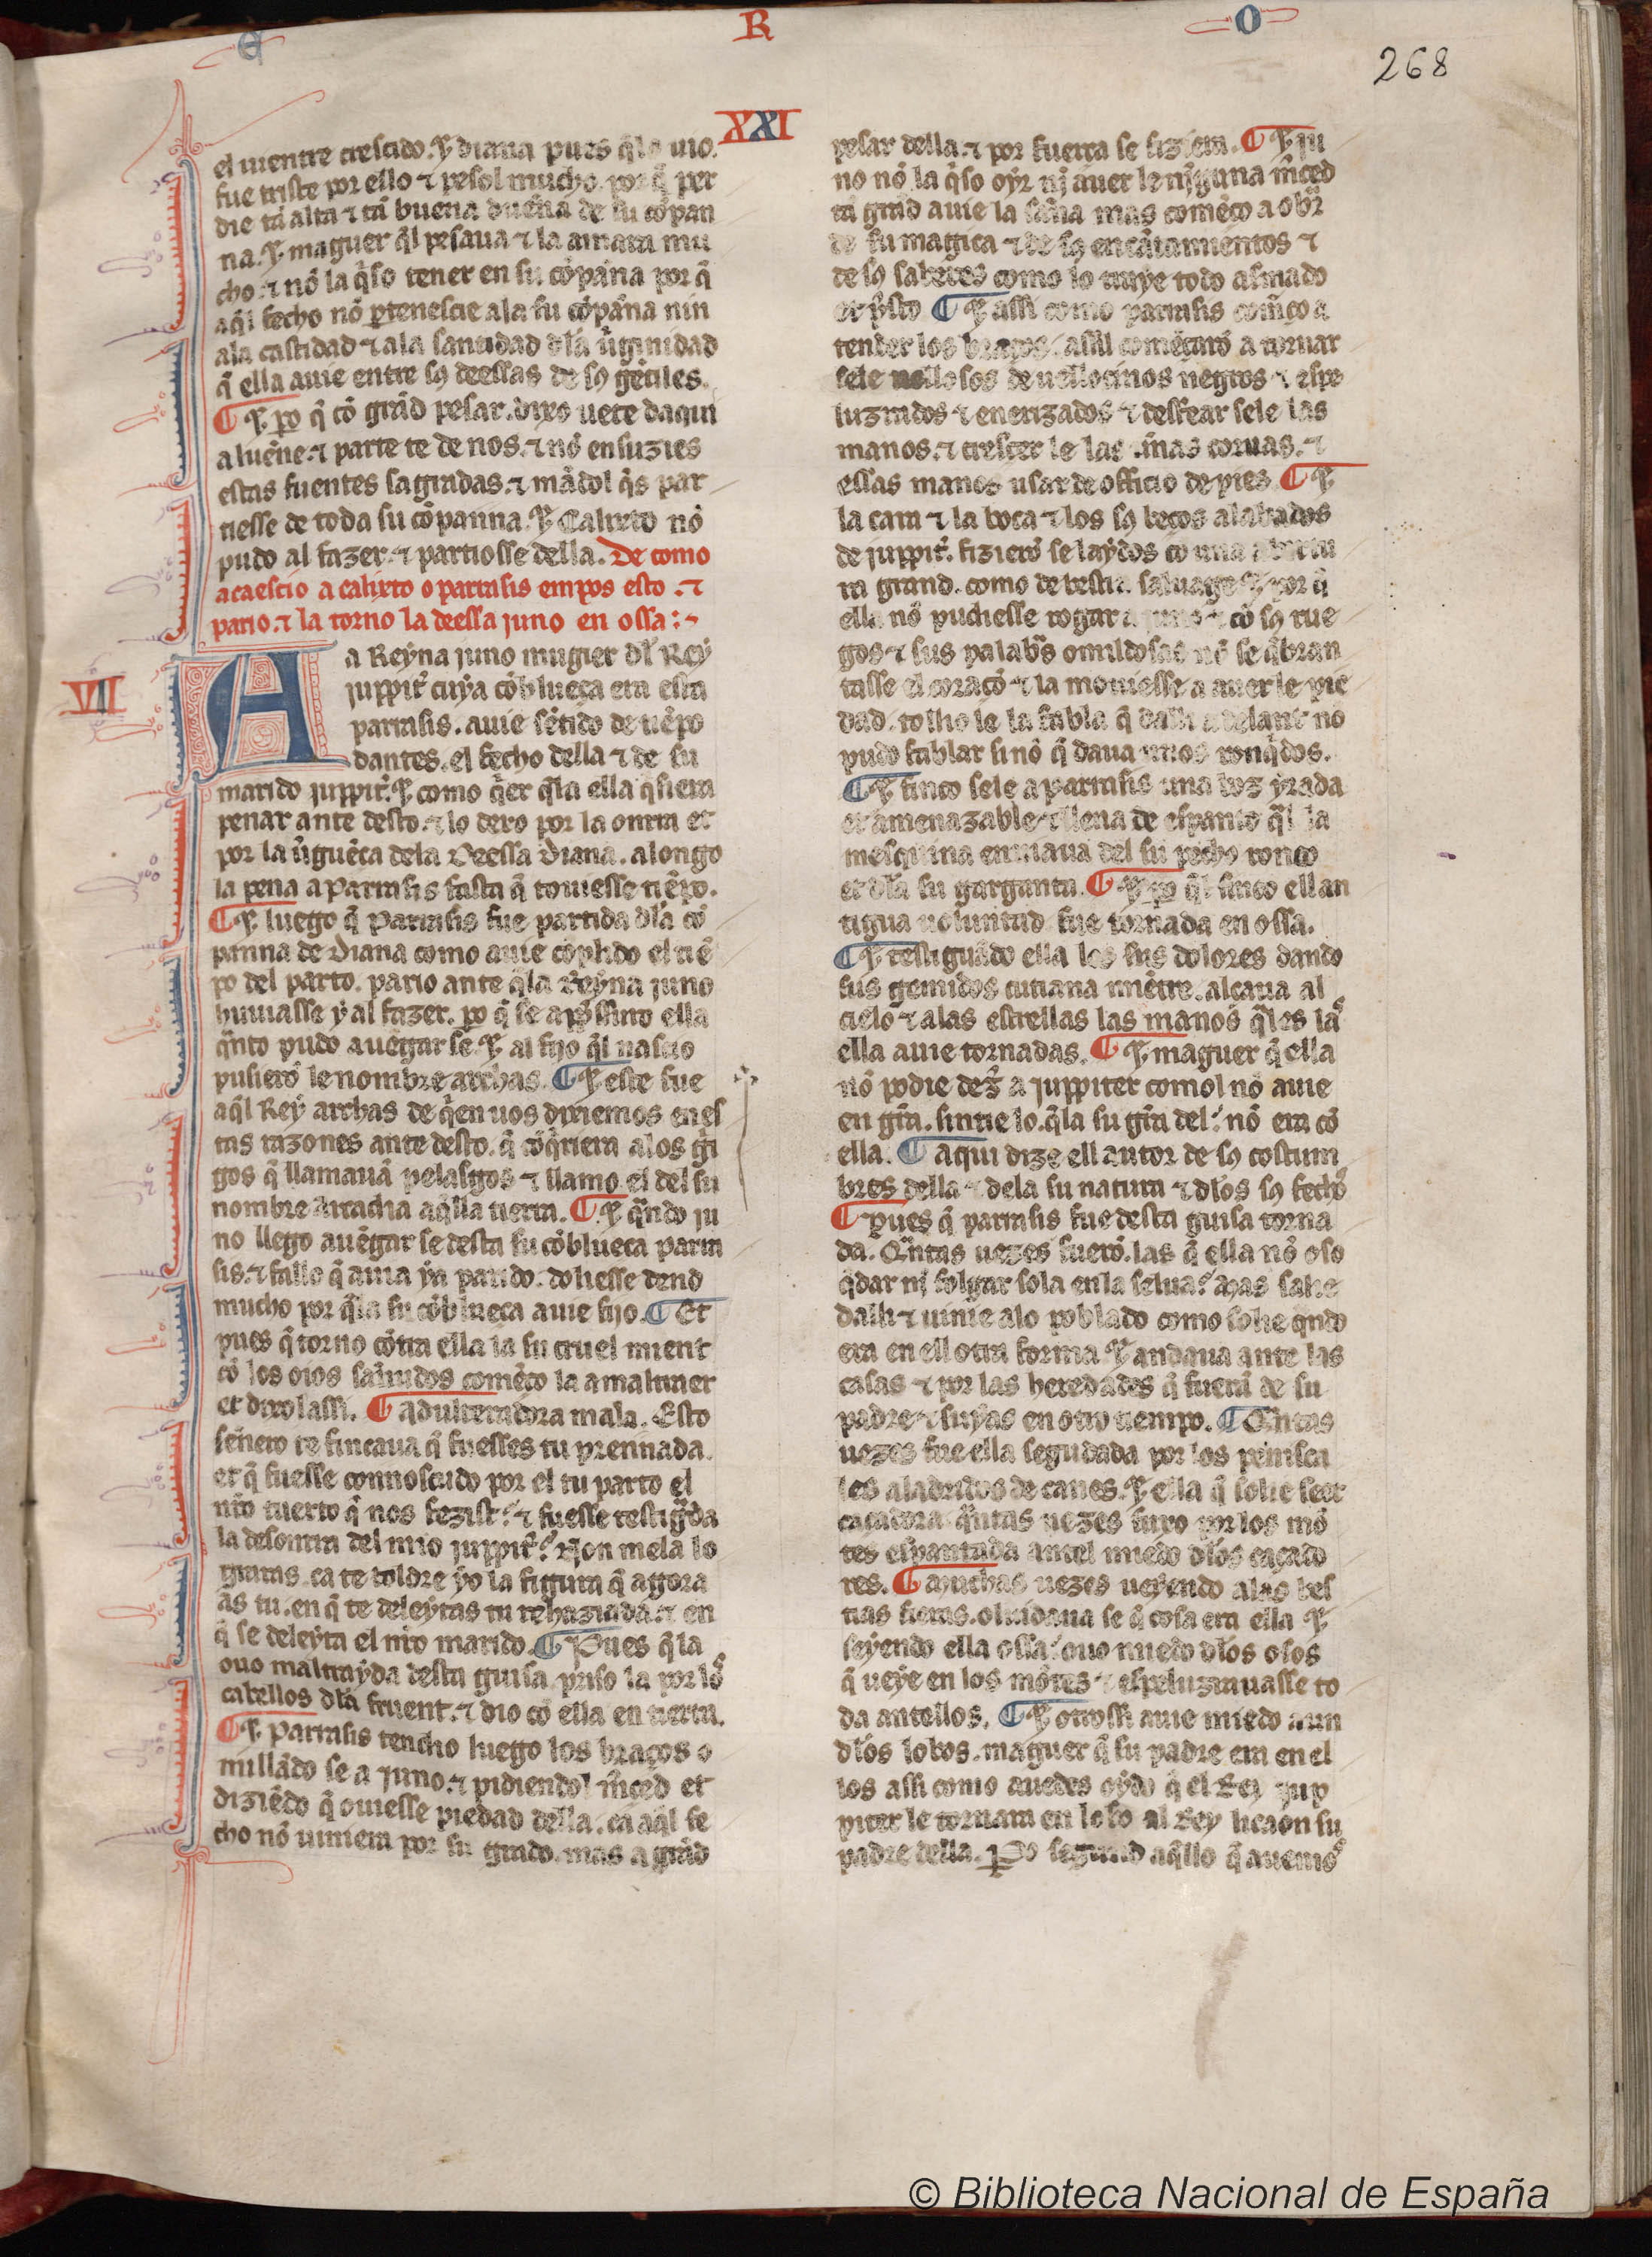 E R O
268
XXI
el uientre crescido. ⁊ diana pues q̃ la uio.
fue triste por ello ⁊ pesol mucho. por q̃ per
die tã alta ⁊ tã buena duen̄a de su cõpan
na. ⁊ maguer q̃l pesaua ⁊ la amara mu
cho. ⁊ nõ la q̃so tener en su cõpan̄a por q̃
aq̃l fecho nõ ꝑtenescie a la su cõpan̄a nin
a la castidad ⁊ a la santidad dl̃a ug̃inidad
q̃ ella auie entre sꝯ deessas de sꝯ gẽtiles.
¶ ⁊ ꝑo q̃ cõ grãd pesar. dixo uete daqui
a luẽne. ⁊ parte te de nos. ⁊ nõ ensuzies
estas fuentes sagradas. ⁊ mãdol q̃s par
tiesse de toda su cõpanna. ⁊ Calixto nõ
pudo al fazer. ⁊ partiosse della. De como
acaescio a calixto o parrasis empos esto. ⁊
pario. ⁊ la torno la deessa juno en ossa :~
VII
A a Reyna juno mugier dl̃ Rey
juppit̃ cuya cõblueça era esta
parrasis. auie sẽtido de tiẽpo
dantes. el fecho della ⁊ de su
marido juppit̃. ⁊ como q̃er q̃la ella q̃siera
penar ante desto. ⁊ lo dexo por la onrra et
por la ũguẽça dela Deessa Diana. alongo
la pena a Parrasis fasta q̃ touiesse tiẽpo.
¶ ⁊ luego q̃ Parrasis fue partida dl̃a cõ
panna de Diana como auie cõplido el tiẽ
po del parto. pario ante q̃la Reyna juno
huuiasse y al fazer. ꝑo q̃ se apressuro ella
q̃nto pudo a uengar se. ⁊ al fijo q̃l nascio
pusierõ le nombre archas. ¶ ⁊ este fue
aq̃l Rey archas de q̃en uos dixiemos en es
tas razones ante desto. q̃ cõq̃riera a los gri
gos q̃ llamauã pelasgos ⁊ llamo el del su
nombre Arcadia aq̃lla tierra. ¶ ⁊ q̃ndo ju
no llego a uẽgar se desta su cõblueça parra
sis. ⁊ fallo q̃ auia ya parido. doliesse dend
mucho por q̃la su cõblueça auie fijo. ¶ Et
pues q̃ torno cõtra ella la su cruel mient
cõ los oios san̄udos comẽço la a maltraer
et dixol assi. ¶ Adulteradora mala. Esto
sen̄ero te fincaua q̃ fuesses tu prennada.
et q̃ fuesse connosçudo por el tu parto el
nr̃o tuerto q̃ nos fezist. ⁊ fuesse testigũada
la desonrra del mio juppit̃. Non mela lo
graras. ca te toldre yo la figura q̃ agora
as tu. en q̃ te deleytas tu rehaziada. ⁊ en
q̃ se deleyta el nr̃o marido. ¶ Pues q̃la
ouo maltrayda desta guisa. priso la por los
cabellos dl̃a fruent. ⁊ dio cõ ella en tierra.
¶ ⁊ Parrasis tendio luego los braços o
millãdo se a Juno. ⁊ pidiendol m̃ced et
diziẽdo q̃ ouiesse piedad della. ca aq̃l fe
cho nõ uiniera por su grado. mas a grãd
pesar della. ⁊ por fuerça se fiziera. ¶ ⁊ ju
no nõ la q̃so oyr nj auer le nj̃guna m̃ced
tã grãd auie la san̄a mas comẽço a obr̃
de su magica ⁊ de sꝯ encãtamientos ⁊
de sꝯ saberes como lo traye todo asmado
et p̃sto ¶ ⁊ assi como parrasis com̃ço a
tender los braços. assil comẽçarõ a tornar
sele uellosos de uellocinos negros ⁊ espe
luzrados ⁊ enerizados ⁊ desfear sele las
manos. ⁊ crescer le las un̄as coruas. ⁊
essas manos usar de officio de pies. ¶ ⁊
la cara ⁊ la boca ⁊ los sꝯ beços alabados
de juppit̃. fizierõ se laydos cõ una abertu
ra grand. como de bestia saluage. ⁊ por q̃
ella nõ pudiesse rogar a juno ⁊ cõ sꝯ rue
gos ⁊ sus palabr̃s omildosas nõ se q̃bran
tasse el coraçõ ⁊ la mouiesse a auer le pie
dad. tollio le la fabla q̃ dalli adelant no
pudo fablar sinõ q̃ daua unos ronq̃dos.
¶ ⁊ finco sele a parrasis una boz yrada
et amenazable ⁊ llena de espanto q̃l la
mesquina enuiaua del su pecho ronco
et dl̃a su garganta. ¶ ⁊ ꝑo q̃l finco ell an
tigua uoluntad. fue tornada en ossa.
¶ ⁊ testiguãdo ella los sus dolores dando
sus gemidos cutiana miẽtre. alçaua al
cielo ⁊ a las estrellas las manos q̃les las
ella auie tornadas. ¶ ⁊ maguer q̃ ella
nõ podie dez̃ a juppiter comol nõ auie
en gr̃a. sintie lo. q̃la su gr̃a del nõ era cõ
ella. ¶ Aqui dize ell autor de sꝯ costum
bres della ⁊ dela su natura ⁊ dl̃os sꝯ fechos
¶ Pues q̃ parrasis fue desta guisa torna
da. Q̃ntas uezes fuerõ. las q̃ ella nõ oso
q̃dar nj folgar sola en la selua. Mas salie
dalli ⁊ uinie a lo poblado como solie q̃ndo
era en ell otra forma. ⁊ andaua ante las
casas ⁊ por las heredades q̃ fuerã de su
padre ⁊ suyas en otro tiempo. ¶ Q̃ntas
uezes fue ella segudada por los peniscã
les a ladridos de canes. ⁊ ella q̃ solie seer
caçadora q̃ntas uezes fuxo por los mõ
tes espantada antel miedo dl̃os caçado
res. ¶ Muchas uezes ueyendo a las bes
tias fieras. oluidaua se q̃ cosa era ella. ⁊
seyendo ella ossa. ouo miedo dl̃os ossos
q̃ ueye en los mõtes ⁊ espeluzrauasse to
da antellos. ¶ ⁊ otrossi auie miedo aun
dl̃os lobos. maguer q̃ su padre era en el
los assi como auedes oydo q̃ el Rey jup
piter le tornara en lobo al Rey licaon su
padre della. Po segund aq̃llo q̃ auemos
© Biblioteca Nacional de España